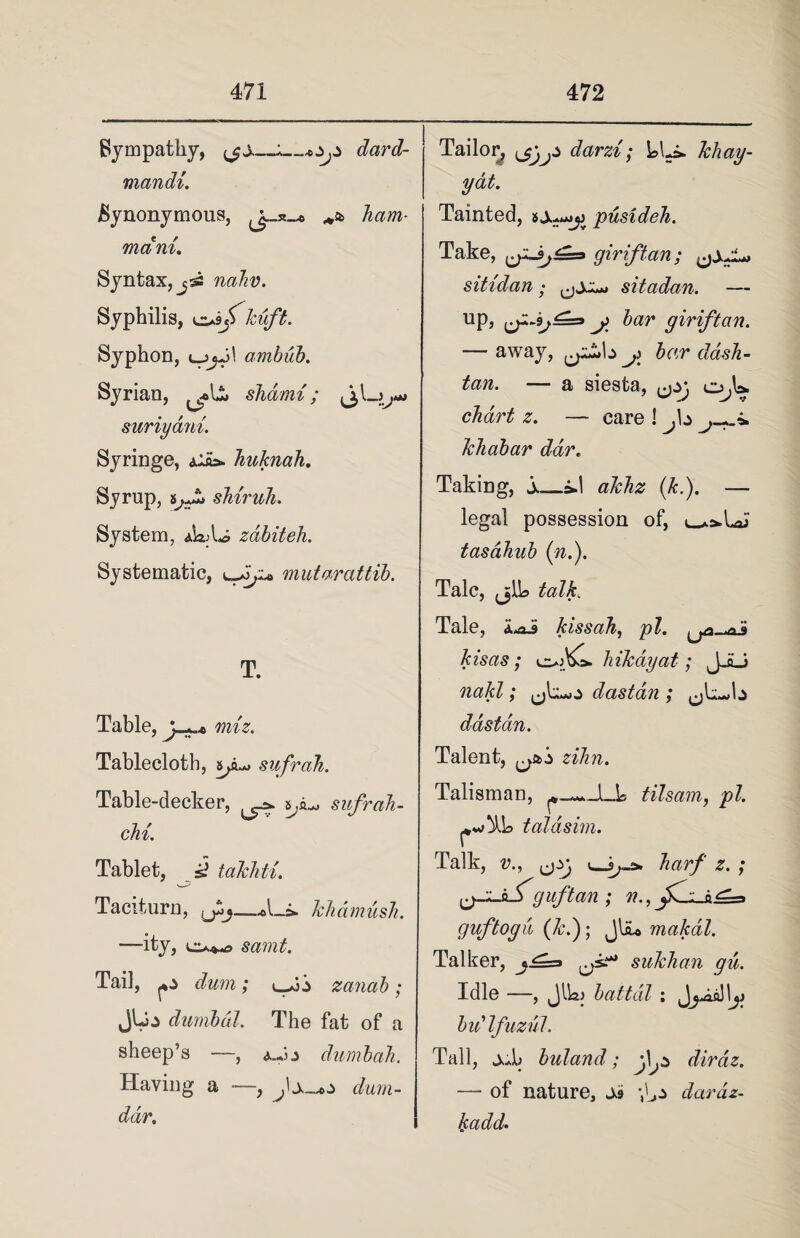 471
Sympathy, دردمندی dard-
mandí.
Synonymous, هم معنی ham-
maʿní.
Syntax, نحو nahv.
Syphilis, کوفت kúft.
Syphon, انبوب ambúb.
Syrian, شامی shámí; سریانی
suriyání.
Syringe, حقنه huknah.
Syrup, شیره shíruh.
System, ضابطه zábiteh.
Systematic, مترتب mutarattib.
T.
Table, میز míz.
Tablecloth, سفره sufrah.
Table-decker, سفره چی sufrah-
chí.
Tablet, تختی takhtí.
Taciturn, خاموش khámúsh.
—ity, صمت samt.
Tail, دم dum; ذنب zanab;
دنبال dumbál. The fat of a
sheep's —, دنبه dumbah.
Having a —, دمدار dum-
dár.
472
Tailor, درزی darzí; خیاط khay-
yát.
Tainted, پوسیده púsídeh.
Take, گرفتن giriftan; ستیدن
sitídan; ستدن sitadan. —
up, بر گرفتن bar giriftan.
— away, بر داشتن bar dásh-
tan. — a siesta, چارت زدن
chárt z. — care! خبر دار
khabar dár.
Taking, اخذ akhz (k.). —
legal possession of, تصاحب
tasáhub (n.).
Talc, طلق talk.
Tale, قصة kissah, pl. قصص
kisas; حکایت hikáyat; نقل
nakl; دستان dastán; داستان
dástán.
Talent, ذهن zihn.
Talisman, طلسم tilsam, pl.
طلاسم talásim.
Talk, v., حرف زدن harf z.;
گفتن guftan; n., گفتگو
guftogú (k.); مقال makál.
Talker, سخن گو sukhan gú.
Idle —, بطال battál: بوالفضول
bu'lfuzúl.
Tall, بلند buland; دراز diráz.
— of nature, دراز قد daráz-
kadd.